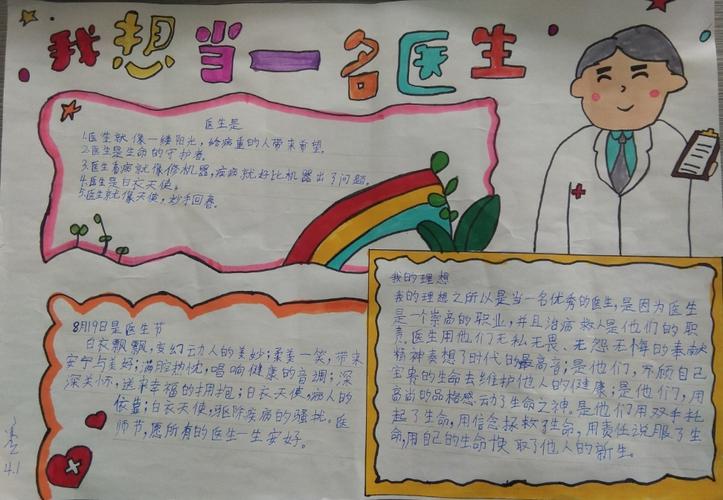 我想当一名医生
医生是
1.医生就像一缕阳光，给病重的人带来希望。
2.医生是生命的守护者。
3.医生看病就像修机器，疾病就好比机器出了问题。
4.医生是白衣天使。
5.医生就像天使，妙手回春。
8月19日是医生节
白衣飘飘，变幻动人的美妙；柔美一笑，带来
安宁与美好；满腔热忱，唱响健康的音调；深
深关怀，送来幸福的拥抱；白衣天使，病人的
依靠；白衣天使，驱除疾病的骚扰。医
师节，愿所有的医生一生安好。
我的理想
我的理想之所以是当一名优秀的医生，是因为医生
是一个崇高的职业，并且治病救人是他们的职
责。医生用他们无私无畏、无怨无悔的奉献
精神奏想了时代的最高音；是他们，不顾自己
宝贵的生命去维护他人的健康；是他们，用
高尚的品格感动了生命之神。是他们用双手托
起了生命，用信念拯救了生命，用责任说服了生
命，用自己的生命换取了他人的新生。
4.1